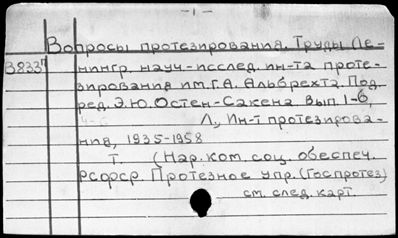 - 1 -
Вопросы протезирования. Труды Ле-
В833п нингр. науч-исслед. ин-та проте-
зирования им. Г.А. Альбрехта. Под
ред. Э.Ю. Остен-Сакена. Вып. 1-6,
Л., Ин-т протезирова-
ния, 1935-1958
Т. (Нар. ком. соц. обеспеч.
РСФСР. Протезное упр. (Госпротез)
см. след. карт.